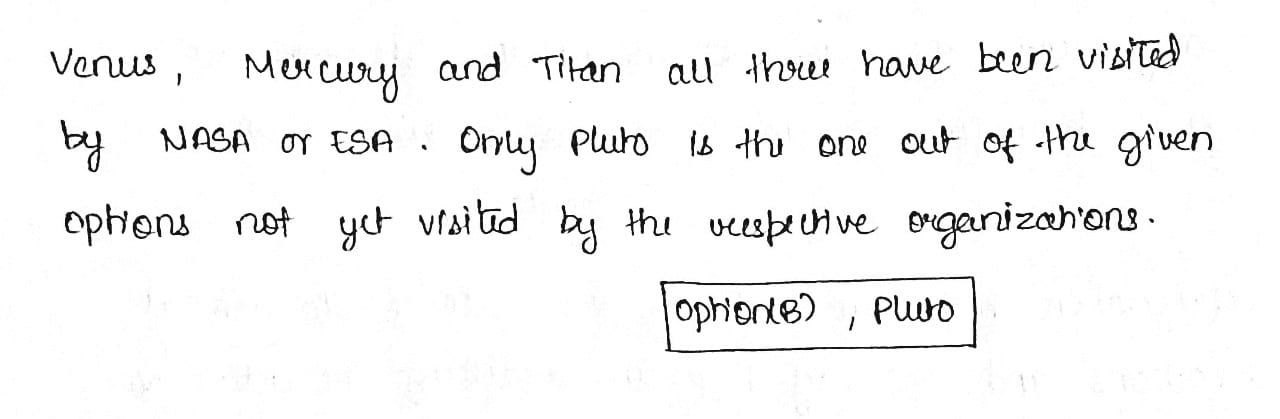 Venus, Mercury and Titan all three have been visited
by NASA or ESA. Only Pluto is the one out of the given
options not yet visited by the respective organizations.
Option(B), Pluto